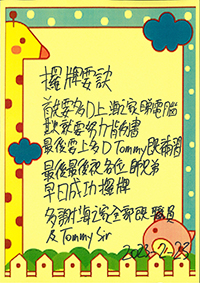 擢牌要訣
首要多D上海之家睇電腦
其次就是努力背書
最後要上多D Tommy既補習
最後最後祝各位師兄弟
早日成功擢牌
多謝海之家全部既職員
及Tommy Sir
2023-11-23